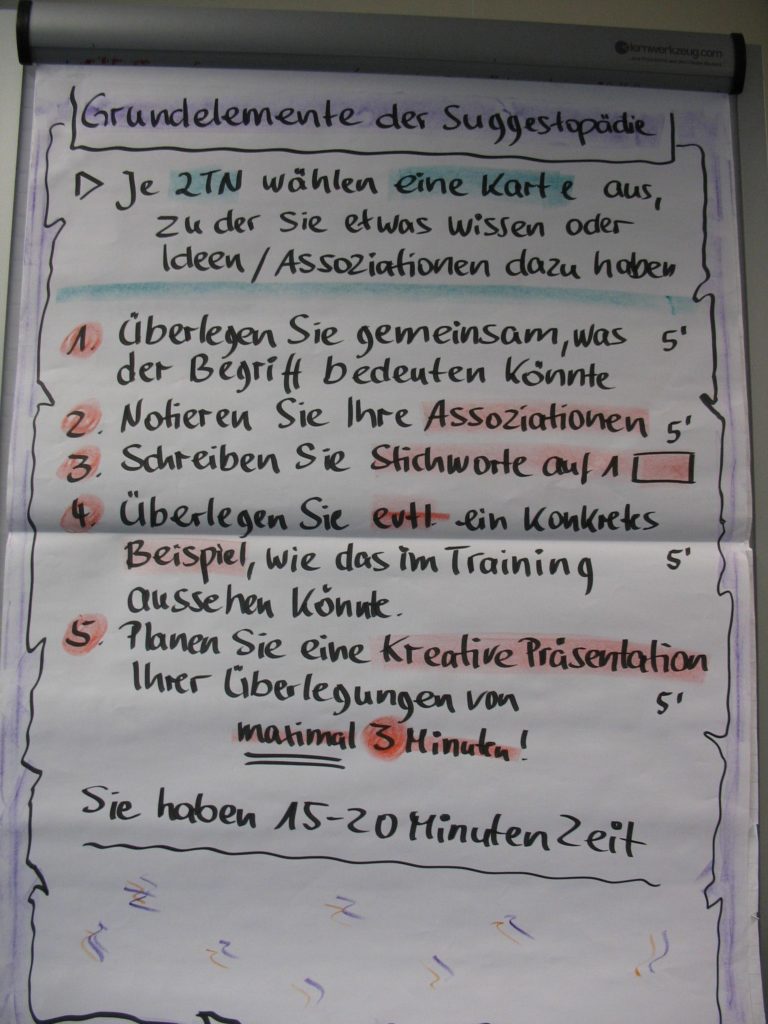 lernwerkzeug.com
Grundelemente der Suggestopädie
Je 2TN wählen eine Karte aus,
zu der Sie etwas wissen oder
Ideen / Assoziationen dazu haben
1. Überlegen Sie gemeinsam, was 5'
der Begriff bedeuten könnte
2. Notieren Sie Ihre Assoziationen 5'
3. Schreiben Sie Stichworte auf 1
4. Überlegen Sie evtl. ein konkretes
Beispiel, wie das im Training 5'
aussehen könnte.
5. Planen Sie eine kreative Präsentation
Ihrer Überlegungen von 5'
maximal 3 Minuten!
Sie haben 15-20 Minuten Zeit